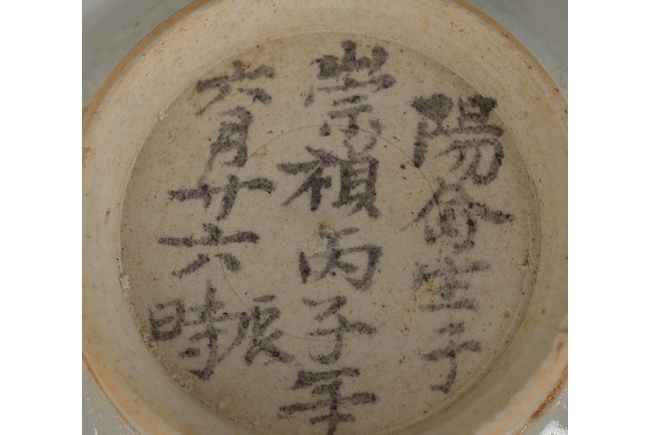 陽命生于
崇禎丙子年
六月廿六
辰時